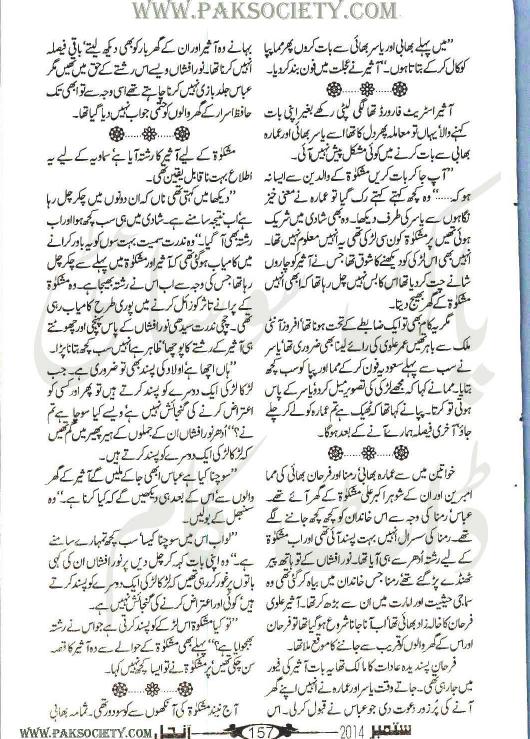 WWW.PAKSOCIETY.COM
”میں پہلے بھابی اور یاسر بھائی سے بات کروں پھر مما پپا
کو کال کر کے بتاتا ہوں۔“ آثیر نے عجلت میں فون بند کر دیا۔
آثیر اسٹریٹ فارورڈ تھا لگی لپٹی رکھے بغیر اپنی بات
کہنے والا یہاں تو معاملہ پھر دل کا تھا اسے یاسر بھائی اور عمارہ
بھابی سے بات کرنے میں کوئی مشکل پیش نہیں آئی۔
”آپ جا کر بات کریں مشکوٰۃ کے والدین سے ایسا نہ
ہو کہ......“ وہ کچھ کہتے کہتے رک گیا تو عمارہ نے معنی خیز
نگاہوں سے یاسر کی طرف دیکھا۔ وہ بھی شادی میں شریک
ہوئی تھیں پر مشکوٰۃ کون سی لڑکی تھی یہ انہیں معلوم نہیں تھا۔
انہیں بھی اس لڑکی کو دیکھنے کا شوق تھا جس نے آثیر کو چاروں
شانے چت کر دیا تھا اس کا بس نہیں چل رہا تھا کہ ابھی انہیں
مشکوٰۃ کے گھر بھیج دیتا۔
مگر یہ کام بھی تو ایک ضابطے کے تحت ہونا تھا‘ افروز آنٹی
ملک سے باہر تھیں عمر علوی کی رائے لینا بھی ضروری تھا‘ یاسر
نے سب سے پہلے سعودیہ فون کر کے مما اور پپا کو سب کچھ
بتایا۔ ممانے کہا کہ مجھے لڑکی کی تصویر میل کر دو یاسر کے پاس
ہوتی تو کرتا۔ پپا نے کہا تھا کہ ٹھیک ہے تم عمارہ کو لے کر چلے
جاؤ‘ آخری فیصلہ ہمارے آنے کے بعد ہوگا۔
خواتین میں سے عمارہ بھابی‘ رمنا اور فرحان بھائی کی مما
امبرین اور ان کے شوہر اکبر علی مشکوٰۃ کے گھر آئے تھے۔
عباس‘ رمنا کی وجہ سے اس خاندان کو کچھ کچھ جاننے لگے
تھے۔ رمنا کی سسرال انہیں بہت پسند آئی تھی اور اب مشکوٰۃ
کے لیے رشتہ اُدھر سے ہی آیا تھا۔ نور افشاں کے تو ہاتھ پیر
ٹھنڈے پڑ گئے تھے‘ رمنا جس خاندان میں بیاہ کر گئی تھی وہ
سماجی حیثیت اور امارت میں ان سے بڑھ کر تھا۔ آثیر علوی
فرحان کا خالہ زاد بھائی تھا‘ اب آنا جانا شروع ہو گیا تھا تو فرحان
اور اس کے گھر والوں کو قریب سے جاننے کا موقع ملا تھا۔
فرحان پسندیدہ عادات کا مالک تھا یہ بات آثیر کی فیور
میں جا رہی تھی۔ جاتے وقت یاسر اور عمارہ نے انہیں اپنے گھر
آنے کی پُر زور دعوت دی جو عباس نے قبول کر لی۔ اس
بہانے وہ آثیر اور ان کے گھر بار کو بھی دیکھ لیتے‘ باقی فیصلہ
انہیں کرنا تھا۔ نور افشاں ویسے اس رشتے کے حق میں تھیں مگر
عباس جلد بازی نہیں کرنا چاہتے تھے اسی وجہ سے تو ابھی تک
حافظ اسرار کے گھر والوں کو حتمی جواب نہیں دیا گیا تھا۔
مشکوٰۃ کے لیے آثیر کا رشتہ آیا ہے‘ سماویہ کے لیے یہ
اطلاع ناقابل یقین تھی۔
”دیکھا میں کہتی تھی ناں کہ ان دونوں میں چکر چل رہا
ہے اب نتیجہ سامنے ہے۔ شادی میں ہی سب کچھ ہوا اور اب
رشتہ بھی آ گیا۔“ وہ ندرت سمیت بہت سوں کو یہ باور کرانے
میں کامیاب ہوگئی تھی کہ آثیر اور مشکوٰۃ میں پہلے سے چکر چل
رہا تھا جس کی وجہ سے اب اس نے رشتہ بھیجا ہے۔ وہ مشکوٰۃ
کے پرانے تاثر کو زائل کرنے میں پوری طرح کامیاب رہی
تھی۔ چچی ندرت سیدھی نور افشاں کے پاس پہنچی اور چھوٹتے
ہی آثیر کے رشتے کا پوچھا‘ ظاہر ہے انہیں سب کچھ بتانا پڑا۔
”ہاں اچھا ہے اولاد کی پسند بھی تو ضروری ہے۔ جب
لڑکا لڑکی ایک دوسرے کو پسند کرتے ہیں تو پھر اور کسی کو
اعتراض کرنے کی گنجائش نہیں ہے‘ ویسے کیا سوچا ہے تم
نے؟“ اُدھر نور افشاں ان کے جملوں کے ہیر پھیر میں گم تھیں
کہ لڑکا لڑکی ایک دوسرے کو پسند کرتے ہیں۔
”سوچنا کیا ہے عباس ابھی جائے ملیں گے آثیر کے گھر
والوں سے‘ اس کے بعد ہی دیکھیں گے کہ کیا کرنا ہے۔“ وہ
سنبھل کے بولیں۔
”لو اب اس میں سوچنا کیسا‘ سب کچھ تمہارے سامنے
ہے۔“ وہ اپنی بات کہہ کر چل دیں پر نور افشاں ان کی کہی
باتوں پر غور کر رہی تھیں کہ لڑکا لڑکی ایک دوسرے کو پسند کرتے
ہیں‘ کوئی اور اعتراض کرنے کی گنجائش نہیں ہے۔
”تو کیا مشکوٰۃ اس لڑکے کو پسند کرتی ہے جو اس نے رشتہ
بھجوایا ہے؟“ پہلے بھی مشکوٰۃ کے حوالے سے وہ آثیر کا قصہ
سن چکی تھیں‘ پر مشکوٰۃ نے تو ایسا کچھ نہیں کہا۔
آج نیند مشکوٰۃ کی آنکھوں سے کوسوں دور تھی۔ ثمامہ بھابی
ستمبر 2014
157
آنچل
WWW.PAKSOCIETY.COM